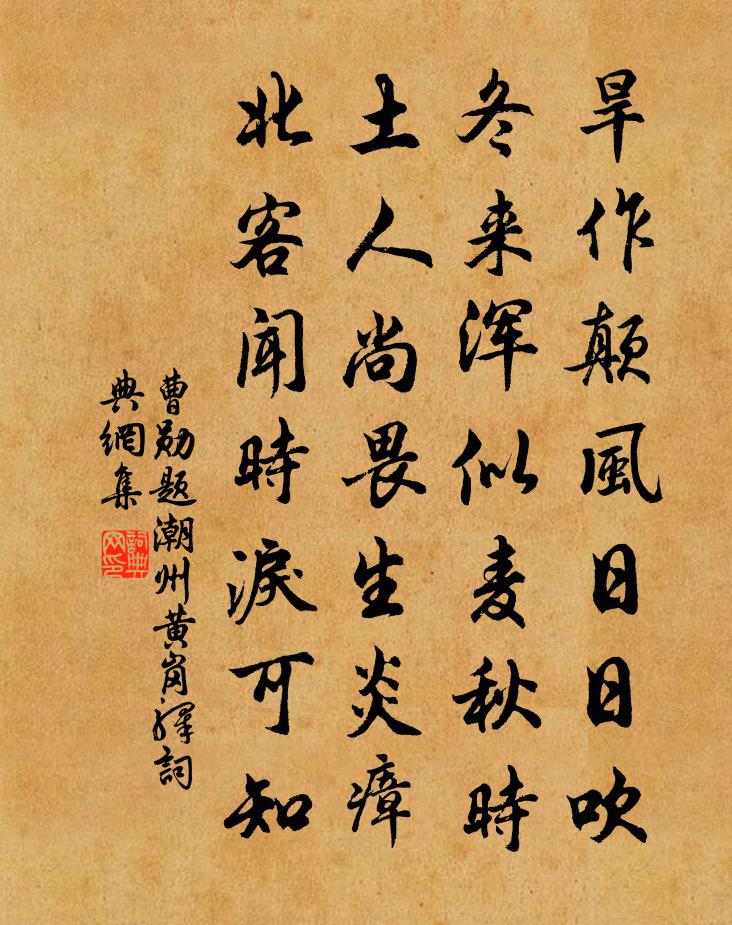 旱作颠風日日吹
冬来浑似麦秋時
土人尚畏生炎瘴
北客闻時淚可知
曹勋题潮州黄岗驛詞
典網集
詞典
网印